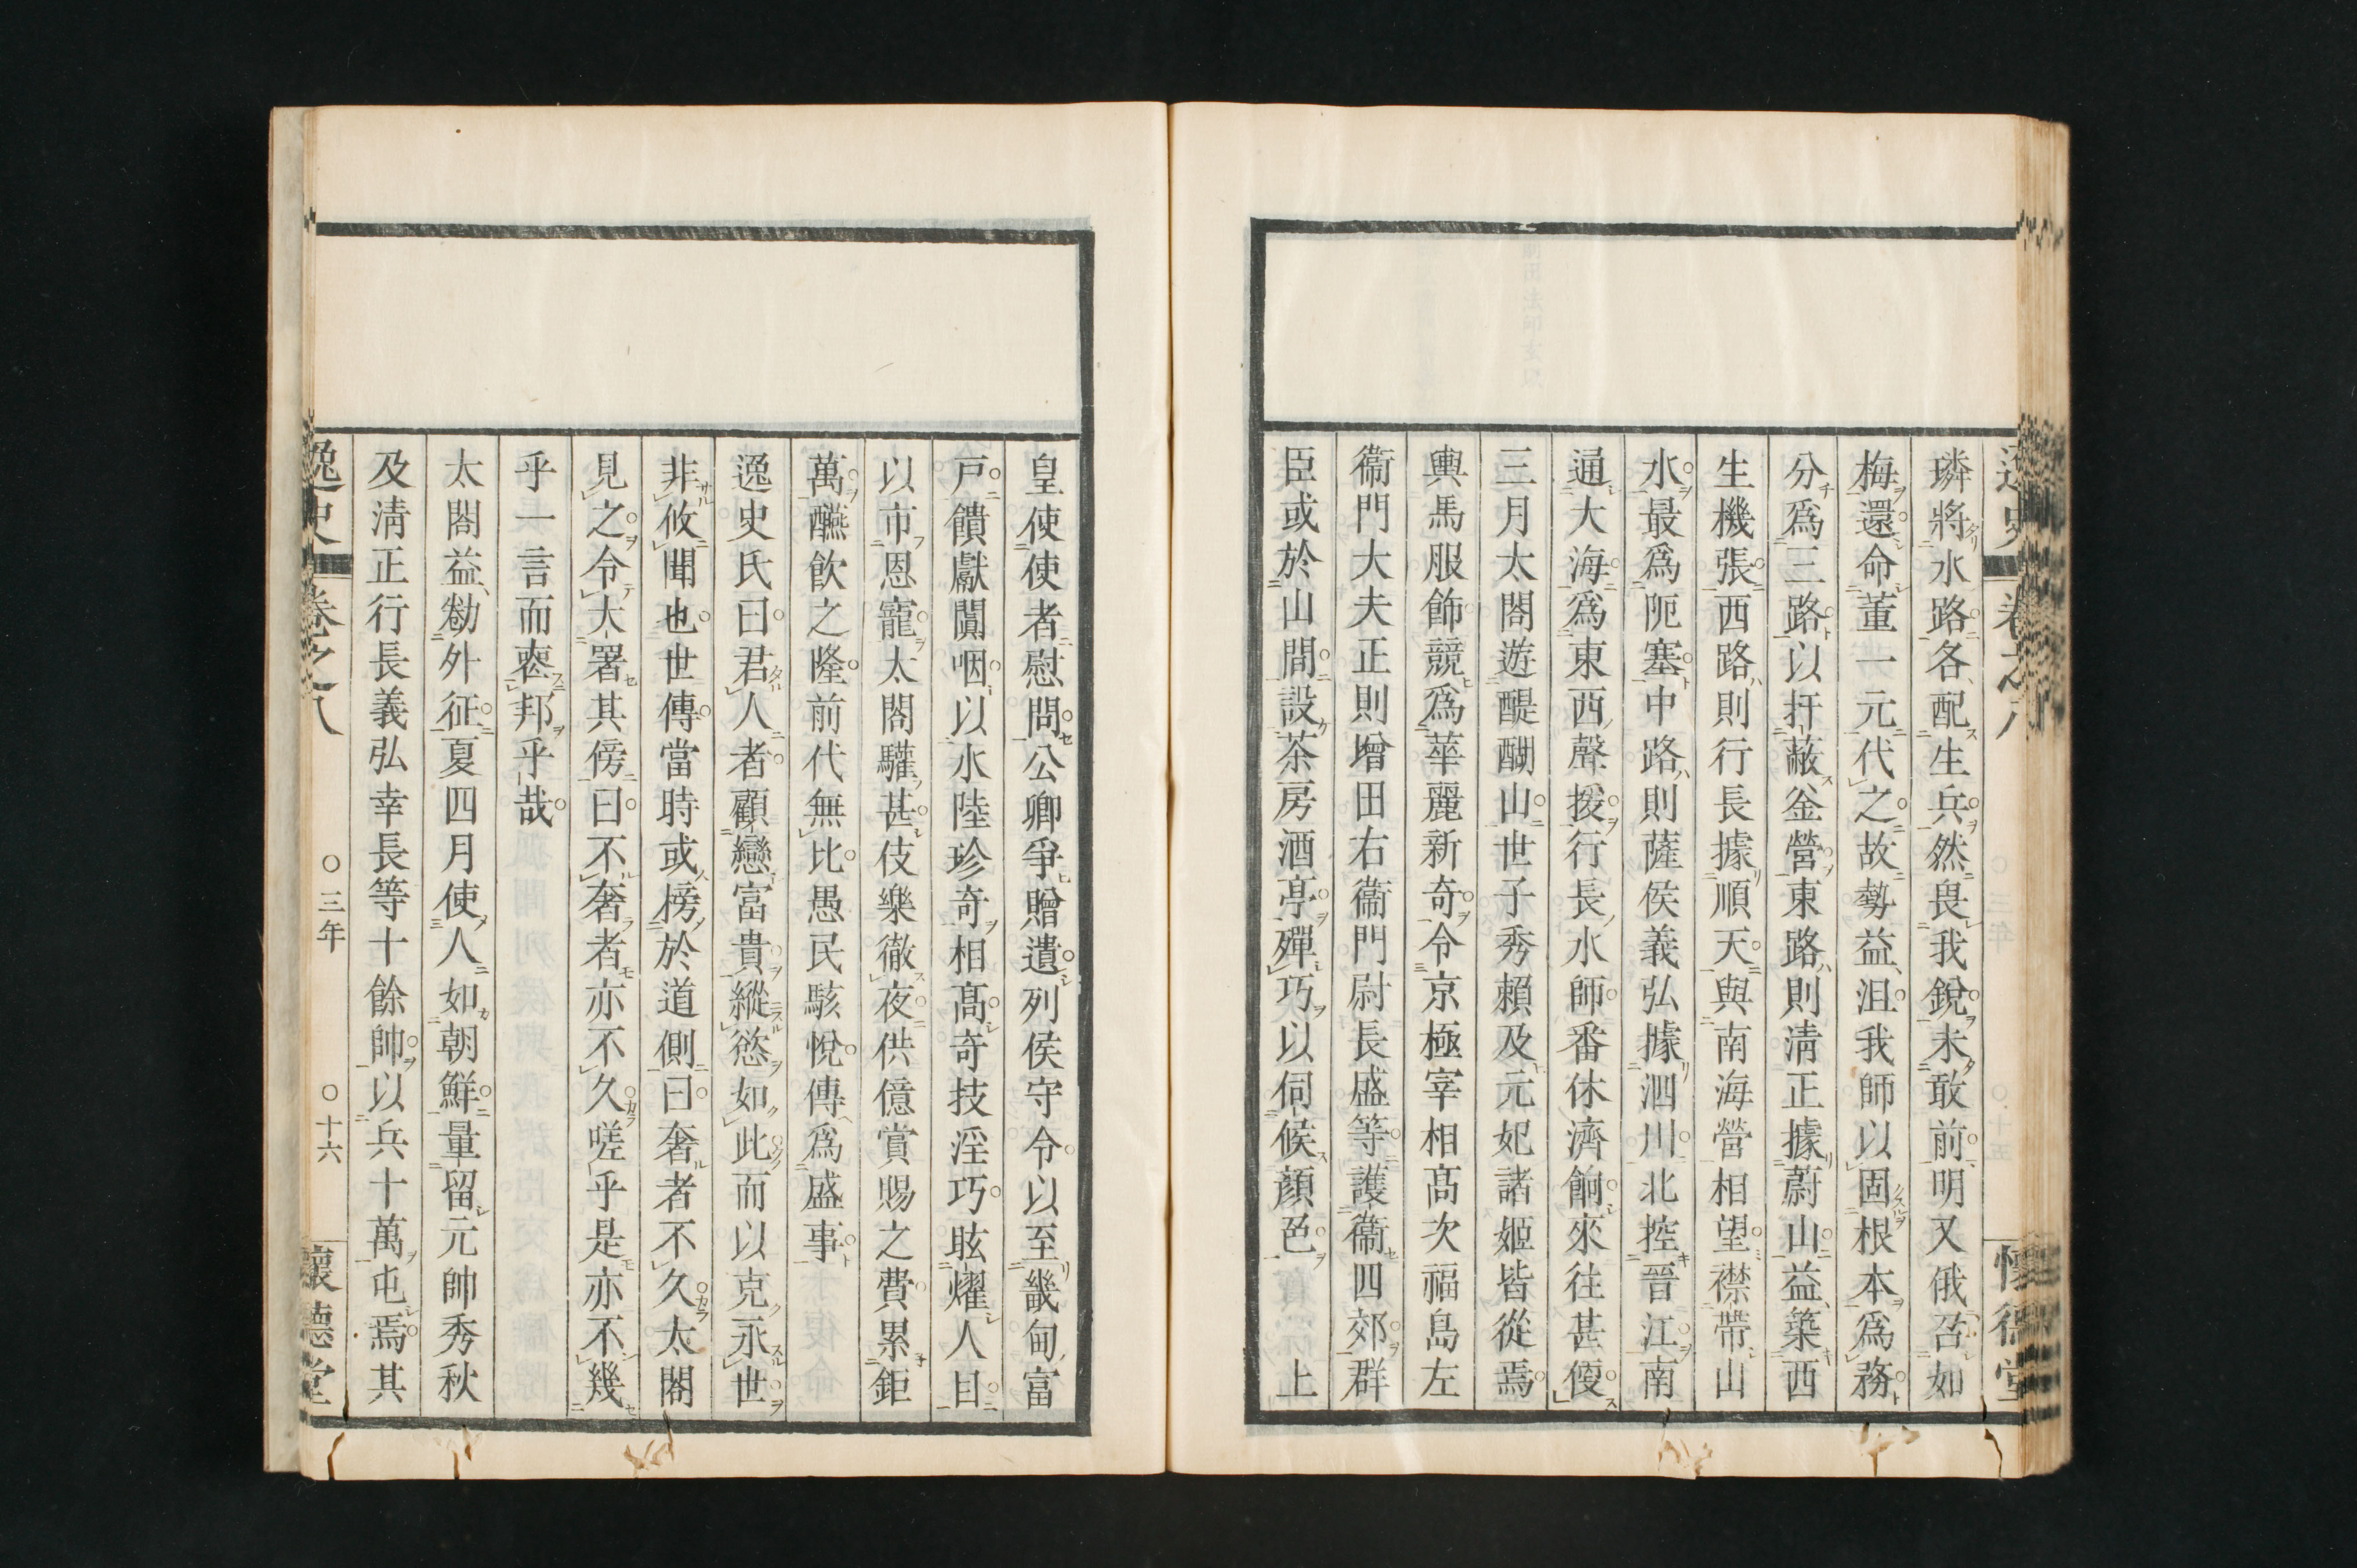 逸史 卷之八 懷德堂
璘將水路各配生兵然畏我銳未敢前明又俄召如
梅還命董一元代之故勢益沮我師以固根本爲務
分爲三路以扞蔽釜營東路則淸正據蔚山益築西
生機張西路則行長據順天與南海營相望襟帶山
水最爲阨塞中路則薩侯義弘據泗川北控晉江南
通大海爲東西聲援行長水師番休濟餉來往甚便
三月太閤遊醍醐山世子秀賴及元妃諸姬皆從焉
輿馬服飾競爲華麗新奇令京極宰相髙次福島左
衞門大夫正則增田右衞門尉長盛等護衞四郊群
臣或於山間設茶房酒亭殫巧以伺候顏色上
皇使使者慰問公卿爭贈遺列侯守令以至畿甸富
戸饋獻闐咽以水陸珍奇相髙奇技淫巧眩燿人目
以市恩寵太閤驩甚伎樂徹夜供億賞賜之費累鉅
萬醼飮之隆前代無比愚民駭悅傳爲盛事
逸史氏曰君人者顧戀富貴縱慾如此而以克永世
非攸聞也世傳當時或榜於道側曰奢者不久太閤
見之令大署其傍曰不奢者亦不久嗟乎是亦不幾
乎一言而喪邦乎哉
太閤益勌外征夏四月使人如朝鮮量留元帥秀秋
及淸正行長義弘幸長等十餘帥以兵十萬屯焉其
逸史 卷之八 ○三年 ○十六 懷德堂